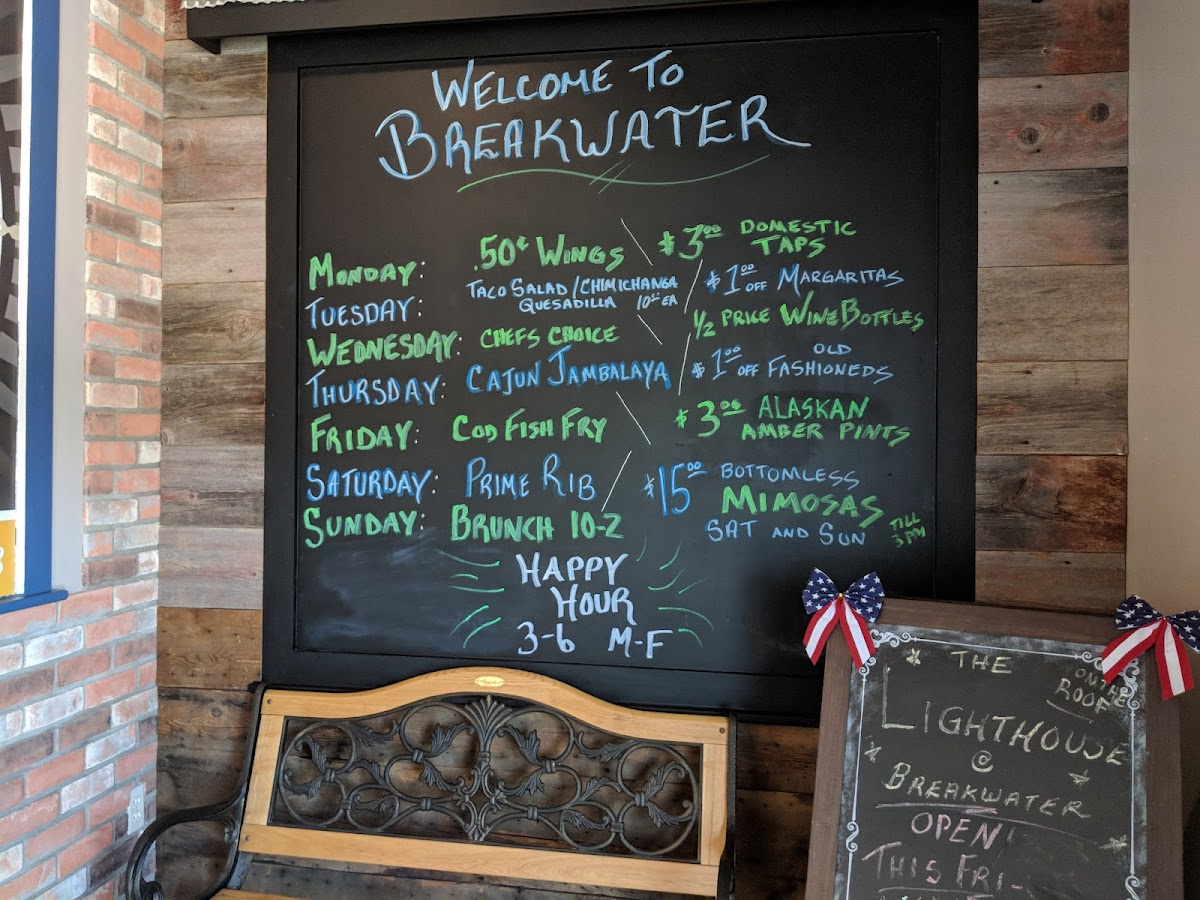 WELCOME TO
BREAKWATER
MONDAY: .50¢ WINGS $3.00 DOMESTIC TAPS
TUESDAY: TACO SALAD/CHIMICHANGA QUESADILLA 10.00 EA $1.00 OFF MARGARITAS
WEDNESDAY: CHEFS CHOICE 1/2 PRICE WINE BOTTLES
THURSDAY: CAJUN JAMBALAYA $1.00 OFF OLD FASHIONEDS
FRIDAY: COD FISH FRY $3.00 ALASKAN AMBER PINTS
SATURDAY: PRIME RIB $15.00 BOTTOMLESS
SUNDAY: BRUNCH 10-2 MIMOSAS
SAT AND SUN TILL 3PM
HAPPY
HOUR
3-6 M-F
THE
ON THE
ROOF
LIGHTHOUSE
@
BREAKWATER
OPEN
THIS FRI-